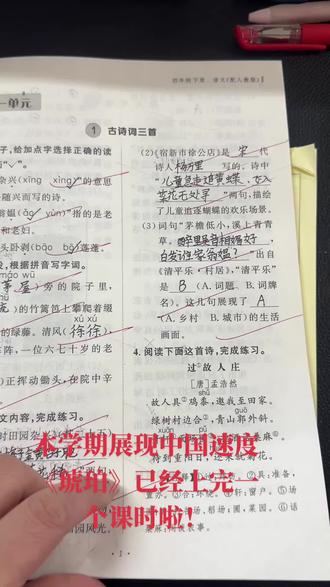 四年级下册 语文(配人教版)
一单元
1 古诗词三首
子,给加点字选择正确的读
杂兴(xīng xìng)”的意思
随兴而写的诗。
翁媪(ǎo yùn)”指的是老
和老妇。
头卧剥(bāo bō)莲蓬。
,根据拼音写字词。
máo wū
茅屋)旁的院子里,
的竹篱笆上攀爬着缀
xú xú
的绿藤。清风(徐徐),
阵,一位六七十岁的老
)正挥动锄头,在院中辛
文内容,完成练习。
时田园杂兴(其二十五)
(2)《宿新市徐公店》是 宋 代
诗人 杨万里 写的。诗中
“儿童急走追黄蝶,飞入
菜花无处寻”两句,描绘
了儿童追逐蝴蝶的欢乐场景。
(3)词句“茅檐低小,溪上青青
草。醉里吴音相媚好,
白发谁家翁媪?”出自
《清平乐·村居》,“清平乐”
是 B (A.词题 B.词牌
名)。这几句展现了 A
(A.乡村 B.城市)的生活
画面。
4. 阅读下面这首诗,完成练习。
过故人庄
[唐]孟浩然
故人具①鸡黍,邀我至田家。
绿树村边合②,青山郭外斜。
待到重阳日,还来就菊花。
本学期展现中国速度
《琥珀》已经上完一
个课时啦!
·1·